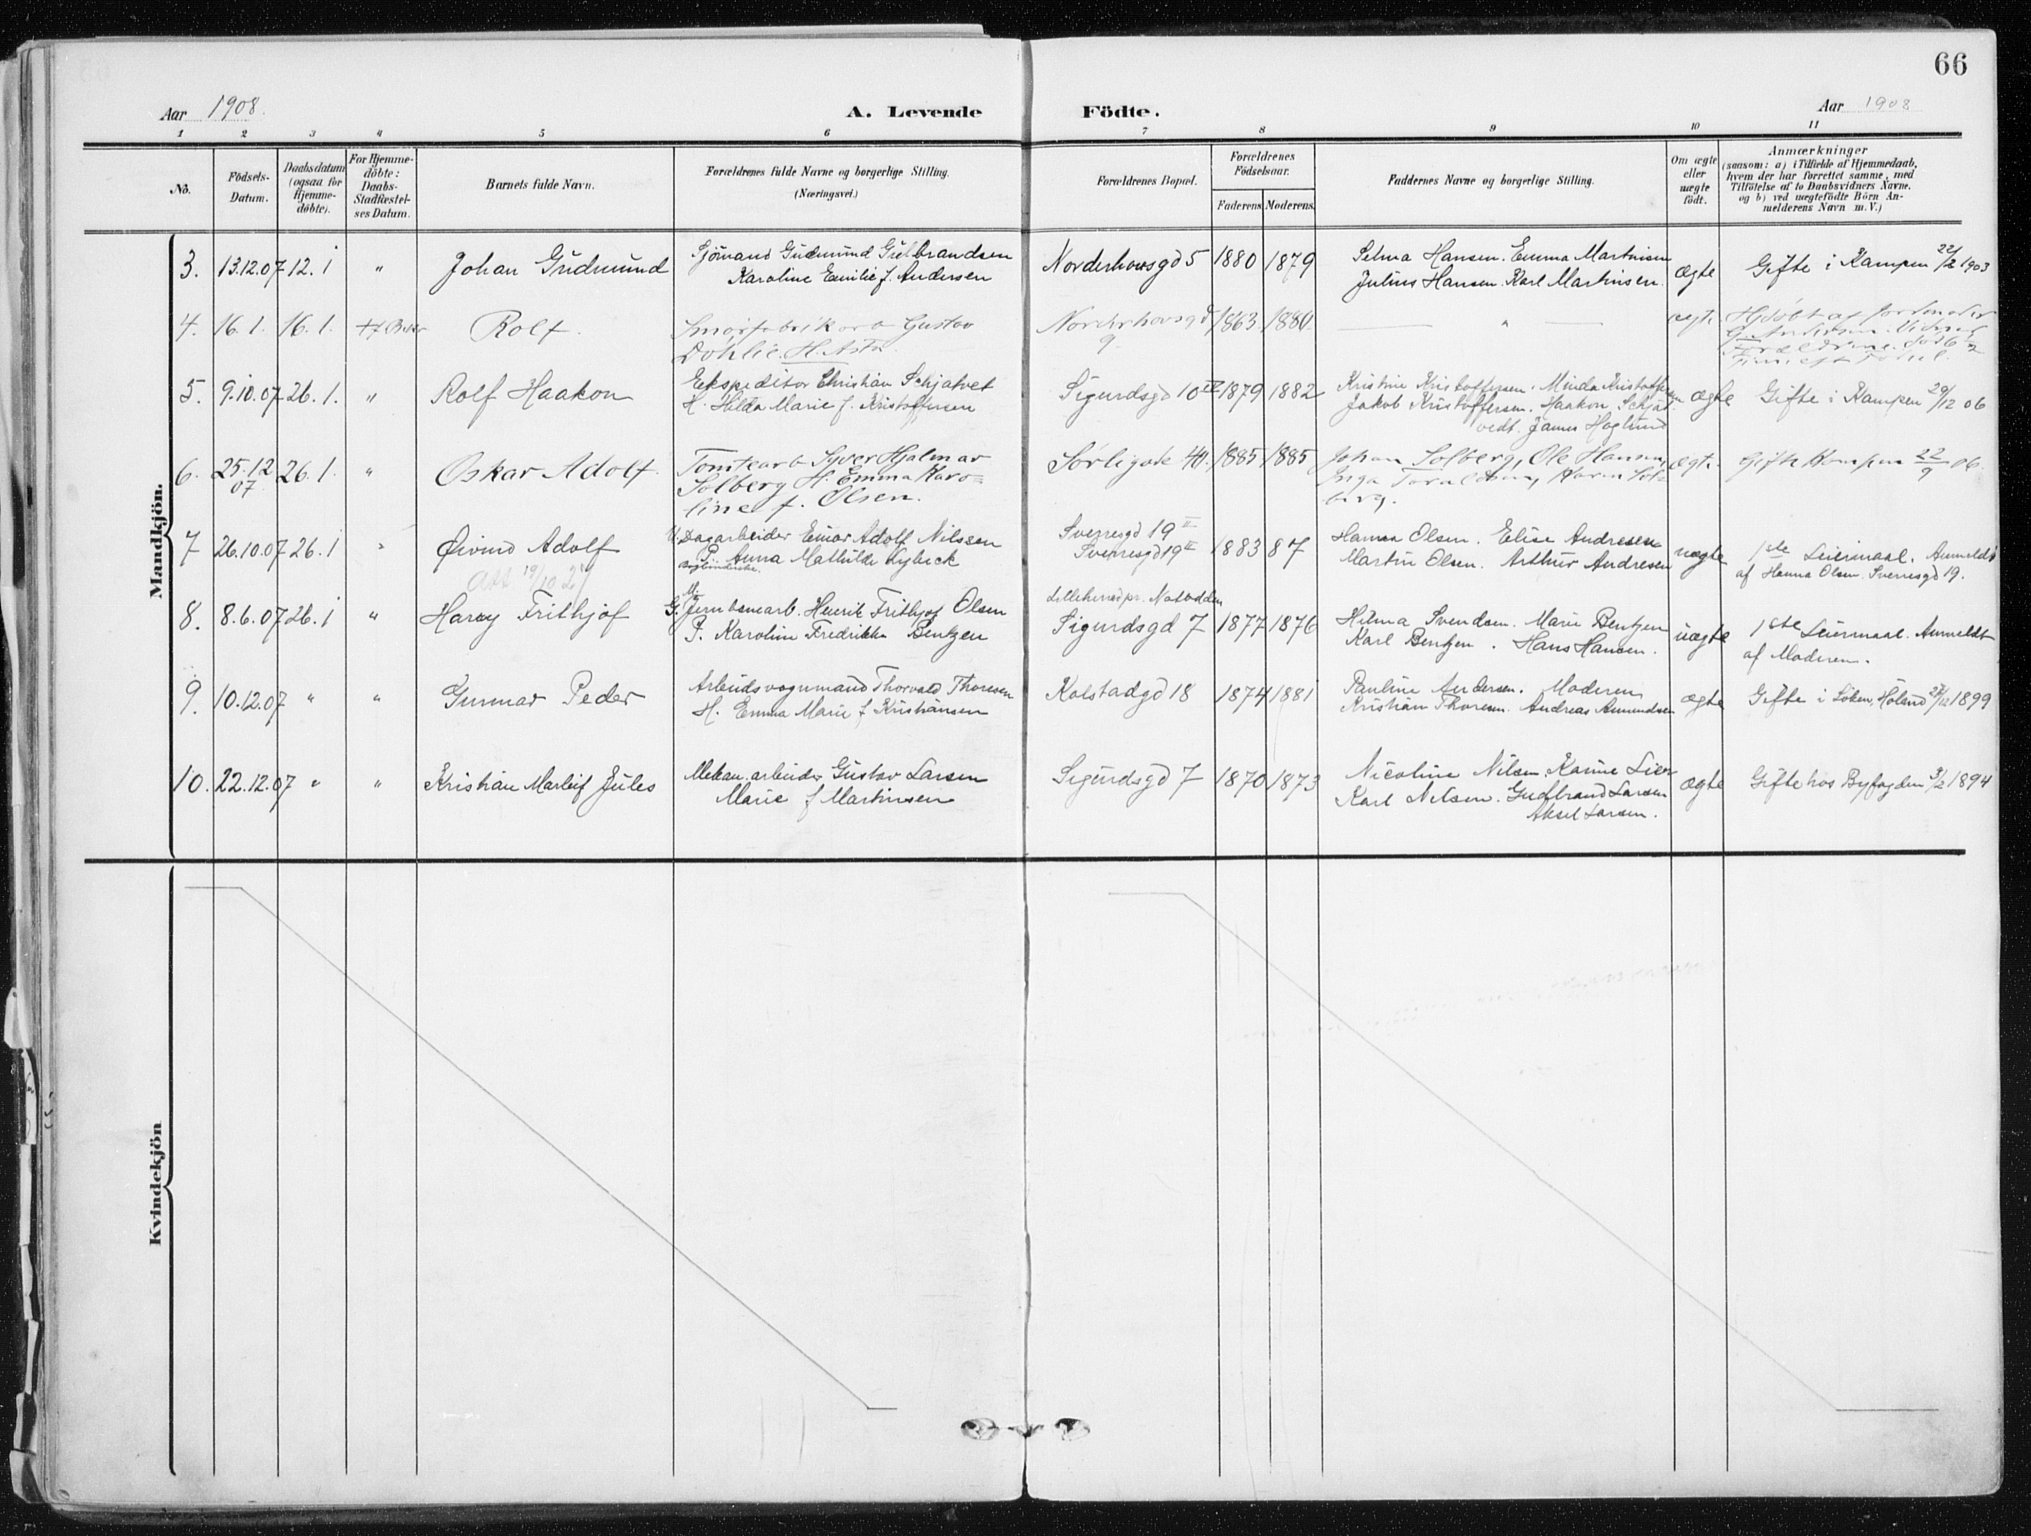 66
Aar 1908.
A. Levende
Födte.
Aar 1908
1 2 3 4 5 6 7 8 9 10 11
No.
Födsels-
Datum.
Daabsdatum
(ogsaa for
Hjemme-
döbte).
For Hjemme-
döbte:
Daabs-
Stadfæstel-
ses Datum.
Barnets fulde Navn.
Forældrenes fulde Navne og borgerlige Stilling.
(Næringsvei.)
Forældrenes Bopæl.
Forældrenes
Födselsaar.
Faderens
Moderens.
Faddernes Navne og borgerlige Stilling.
Om ægte
eller
uægte
födt.
Anmærkninger
(saasom: a) i Tilfælde af Hjemmedaab,
hvem der har forrettet samme, med
Tilföielse af to Daabsvidners Navne.
og b) ved uægtefödte Börn An-
melderens Navn m. V.)
Mandkjön.
3. 13.12.07 12.1 " Johan Gudmund
Sjömand Gudmund Gulbrandsen
Karoline Emilie f. Andersen
Norderhovsgd 5 1880 1879
Selma Hansen. Emma Martinsen
Julius Hansen. Karl Martinsen.
ægte
Gifte i Kampen 22/2 1903
4. 16.1. 16.1. Rolf.
Gustav
Döhlie. H. Asta
Norderhovsgd
9
1863 1880
— " —
ægte
Hjdöbt af Jordmoder
5. 9.10.07 26.1. " Rolf Haakon
Ekspeditör Christian Schjatvet
H. Hilda Marie f. Kristoffersen
Sigurdsgd 10 IV 1879 1882
Kristine Kristoffersen. Minda Kristoffersen
Jakob Kristoffersen. Haakon Schjat-
vedt. James Haglund
ægte
Gifte i Kampen 29/12 06
6. 25.12
07. 26.1. " Oskar Adolf.
Tomtearb. Syver Hjalmar
Solberg H. Emma Karo-
line f. Olsen.
Sörligade 40. 1885 1885
Johan Solberg, Ole Hansen,
Inga Toraldsen, Karen Sol-
berg.
ægt.
Gifte Kampen 22/9 06.
7 26.10.07 26.1 " Øivind Adolf
19/10 27
U. Dagarbeider Einar Adolf Nilssen
P. Anna Mathilde Lybeck
Sverresgd 19 II
Sverresgd 19 II
1883 87
Hanna Olsen. Elise Andresen
Martin Olsen. Arthur Andresen
uægte
1ste Leiermaal. Anmeldt
af Hanna Olsen. Sverresgd 19.
8. 8.6.07 26.1 " Harry Frithjof
G. Jernbanearb. Henrik Frithjof Olsen
P. Karoline Fredrikke Bentzen
Lilleherred pr. Notodden
Sigurdsgd 7 1877 1876
Hilma Svendsen. Marie Bentzen
Karl Bentzen. Hans Hansen.
uægte
1ste Leiermaal. Anmeldt
af Moderen.
9. 10.12.07 " " Gunnar Peder
Arbeidsvognmand Thorvald Thoresen
H. Emma Marie f Kristiansen
Kolstadgd 18 1874 1881
Pauline Andersen. Moderen
Kristian Thoresen. Andreas Amundsen
ægte
Gifte i Löken, Höland 27/12 1899
10. 22.12.07 " " Kristian Marleif Jules
Mekan. arbeider Gustav Larsen
Marie f Martinsen
Sigurdsgd 7 1870 1873
Nicoline Nilsen Karine Lier
Karl Nilsen. Gudbrand Larsen
Aksel Larsen.
ægte
Gifte hos Byfogden 3/2 1894
Kvindekjön